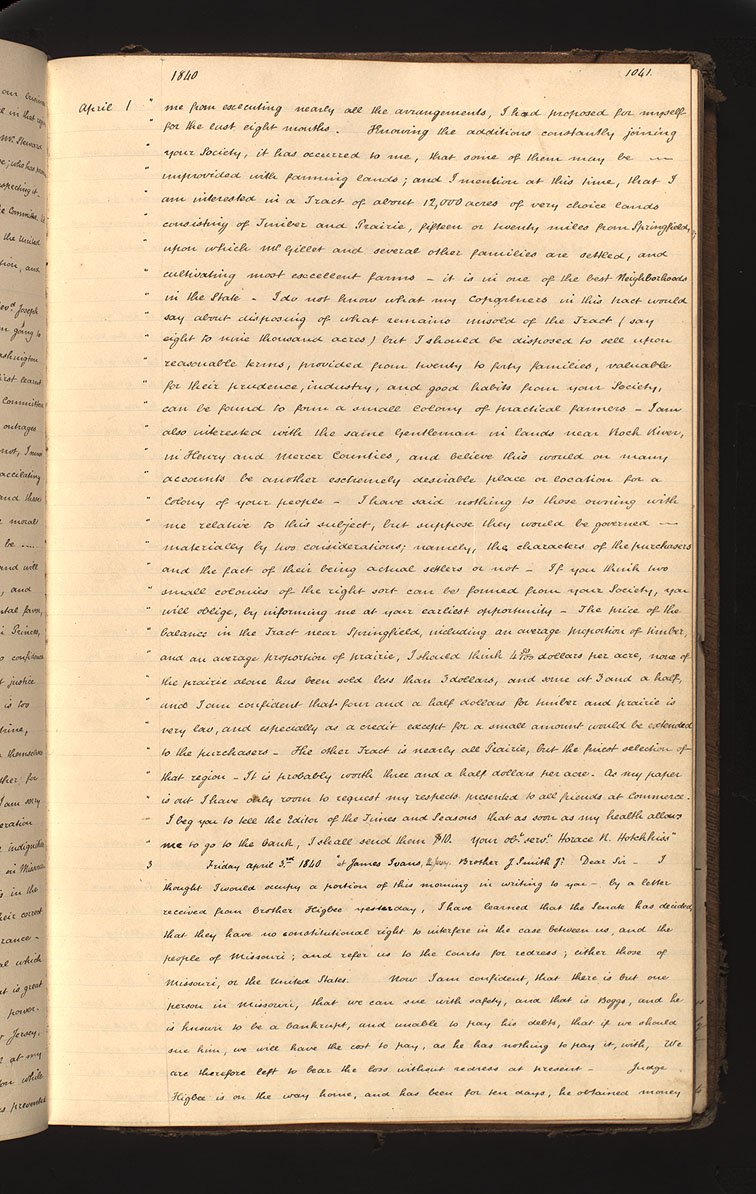 1840 1041.
April 1 " me from executing nearly all the arrangements, I had proposed for myself
" for the last eight months. Knowing the additions constantly joining
" your Society, it has occurred to me, that some of them may be —
" unprovided with farming lands; and I mention at this time, that I
" am interested in a Tract of about 12,000 acres of very choice lands
" consisting of Timber and Prairie, fifteen or twenty miles from Springfield,
" upon which Mr Gillet and several other families are settled, and
" cultivating most excellent farms – it is in one of the best Neighborhoods
" in the State – I do not know what my copartners in this tract would
" say about disposing of what remains unsold of the Tract (say
" eight to nine thousand acres) but I should be disposed to sell upon
" reasonable terms, provided from twenty to forty families, valuable
" for their prudence, industry, and good habits from your Society,
" can be found to form a small Colony of practical farmers – I am
" also interested with the same Gentleman in lands near Rock River,
" in Henry and Mercer Counties, and believe this would on many
" accounts be another extremely desirable place or location for a
" Colony of your people – I have said nothing to those owning with
" me relative to this subject, but suppose they would be governed —
" materially by two considerations; namely, the characters of the purchasers
" and the fact of their being actual settlers or not – If you think two
" small colonies of the right sort can be formed from your Society, you
" will oblige, by informing me at your earliest opportunity – The price of the
" balance in the Tract near Springfield, including an average proportion of timber,
" and an average proportion of prairie, I should think 4 50/100 dollars per acre, none of
" the prairie alone has been sold less than 3 dollars, and some at 3 and a half,
" and I am confident that four and a half dollars for timber and prairie is
" very low, and especially as a credit except for a small amount would be extended
" to the purchasers – The other Tract is nearly all Prairie, but the finest selection of
" that region – It is probably worth three and a half dollars per acre. As my paper
" is out I have only room to request my respects presented to all friends at Commerce.
– I beg you to tell the Editor of the Times and Seasons that as soon as my health allows
" me to go to the bank, I shall send them $10. Your obt. servt. Horace R. Hotchkiss"
3 Friday April 3rd 1840 "at James Ivans, Brother J. Smith Jr. Dear Sir – I
thought I would occupy a portion of this morning in writing to you – by a letter
received from Brother Higbee yesterday, I have learned that the Senate has decided,
that they have no constitutional right to interfere in the case between us, and the
people of Missouri; and refer us to the Courts for redress; either those of
Missouri, or the United States. Now I am confident, that there is but one
person in Missouri, that we can sue with safety, and that is Boggs, and he
is known to be a bankrupt, and unable to pay his debts, that if we should
sue him, we will have the cost to pay, as he has nothing to pay it, with, We
are therefore left to bear the loss without redress at present – Judge
Higbee is on the way home, and has been for ten days, he obtained money